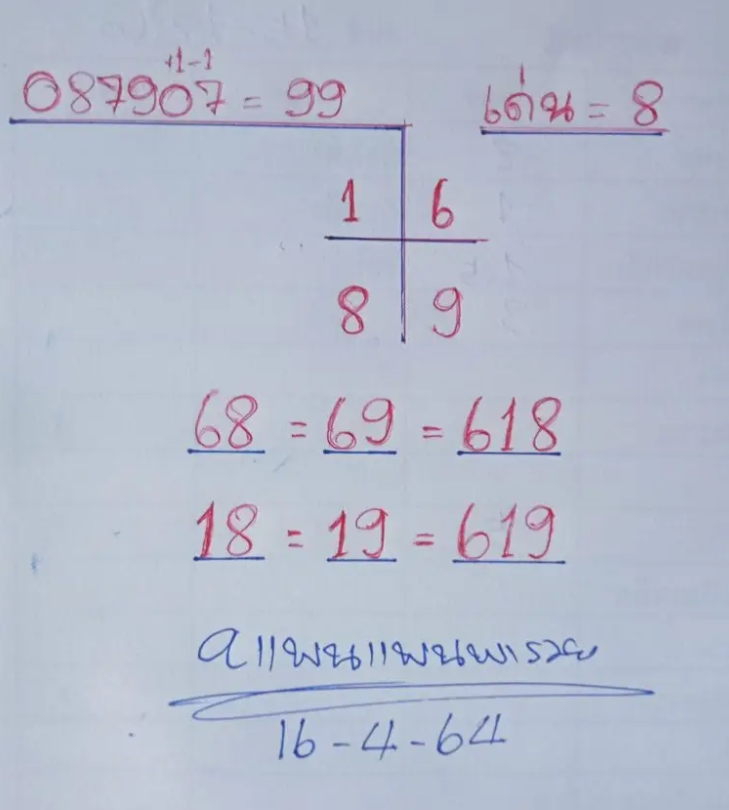 +1-1
087907 = 99
เด่น = 8
1 6
8 9
68 = 69 = 618
18 = 19 = 619
อแพนแพนพารวย
16-4-64